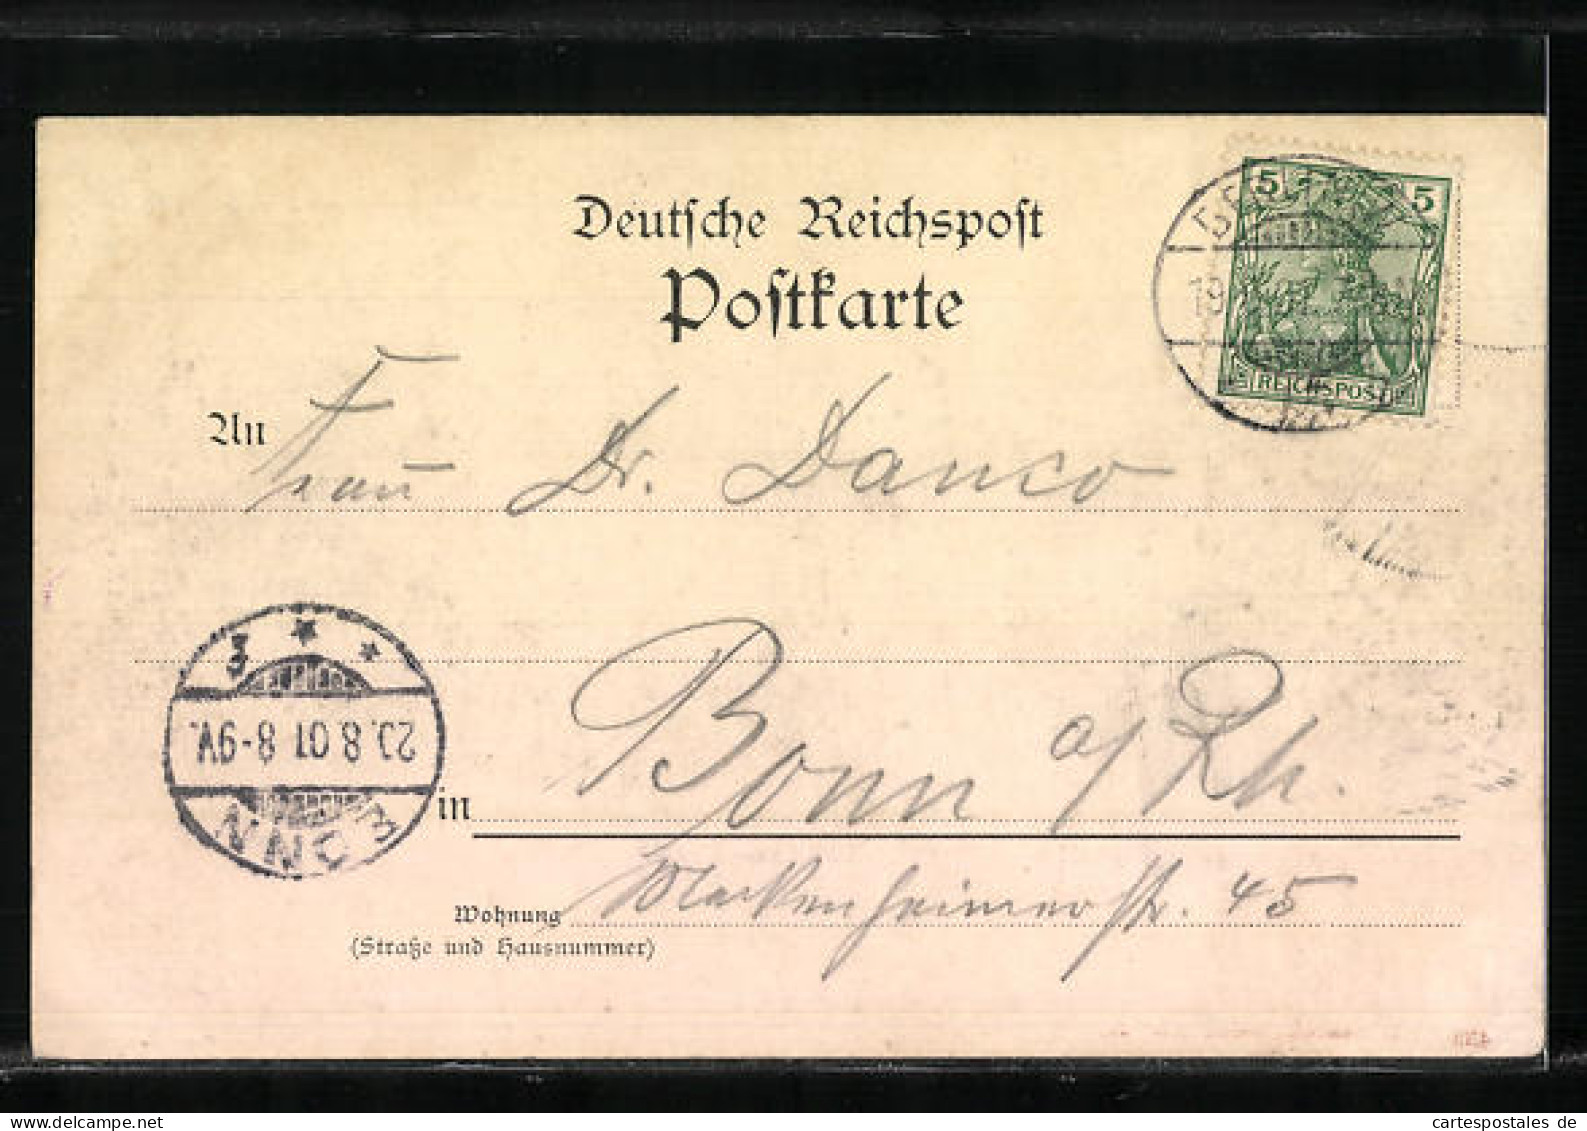 Deutsche Reichspost
Postkarte
5 5
REICHSPOST
19
An Frau Dr. Danco
3
20.8.01 8-9V.
BONN
in Bonn a/Rh.
Wohnung Meckenheimerstr. 45
(Straße und Hausnummer)
cartespostales de